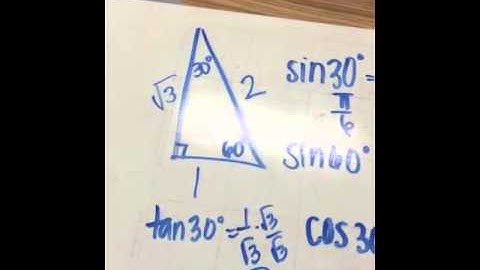 30°
√3
2
60
1
sin30°=
π/6
sin60°
tan30°=1/√3·√3/√3
cos30